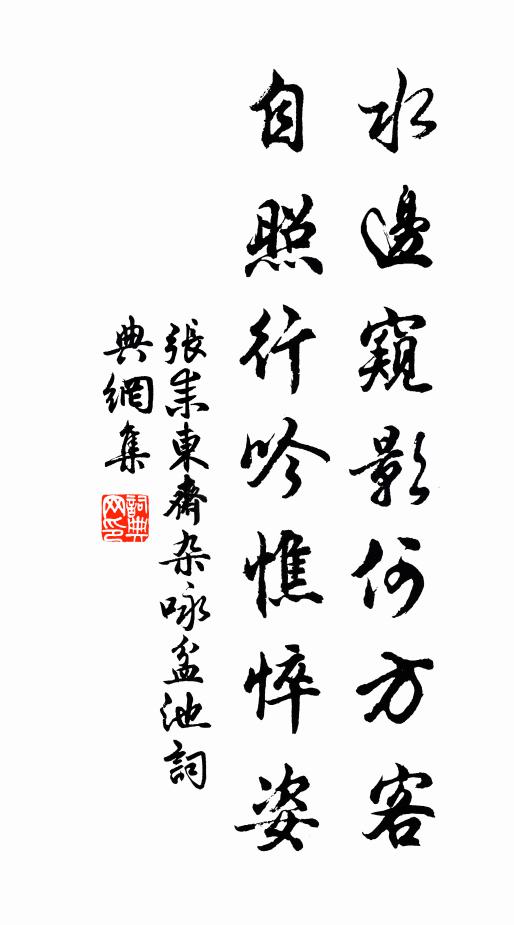 水邊窺影何方客
自照行吟憔悴姿
張耒東齋杂咏盆池詞
典網集
詞典
网印